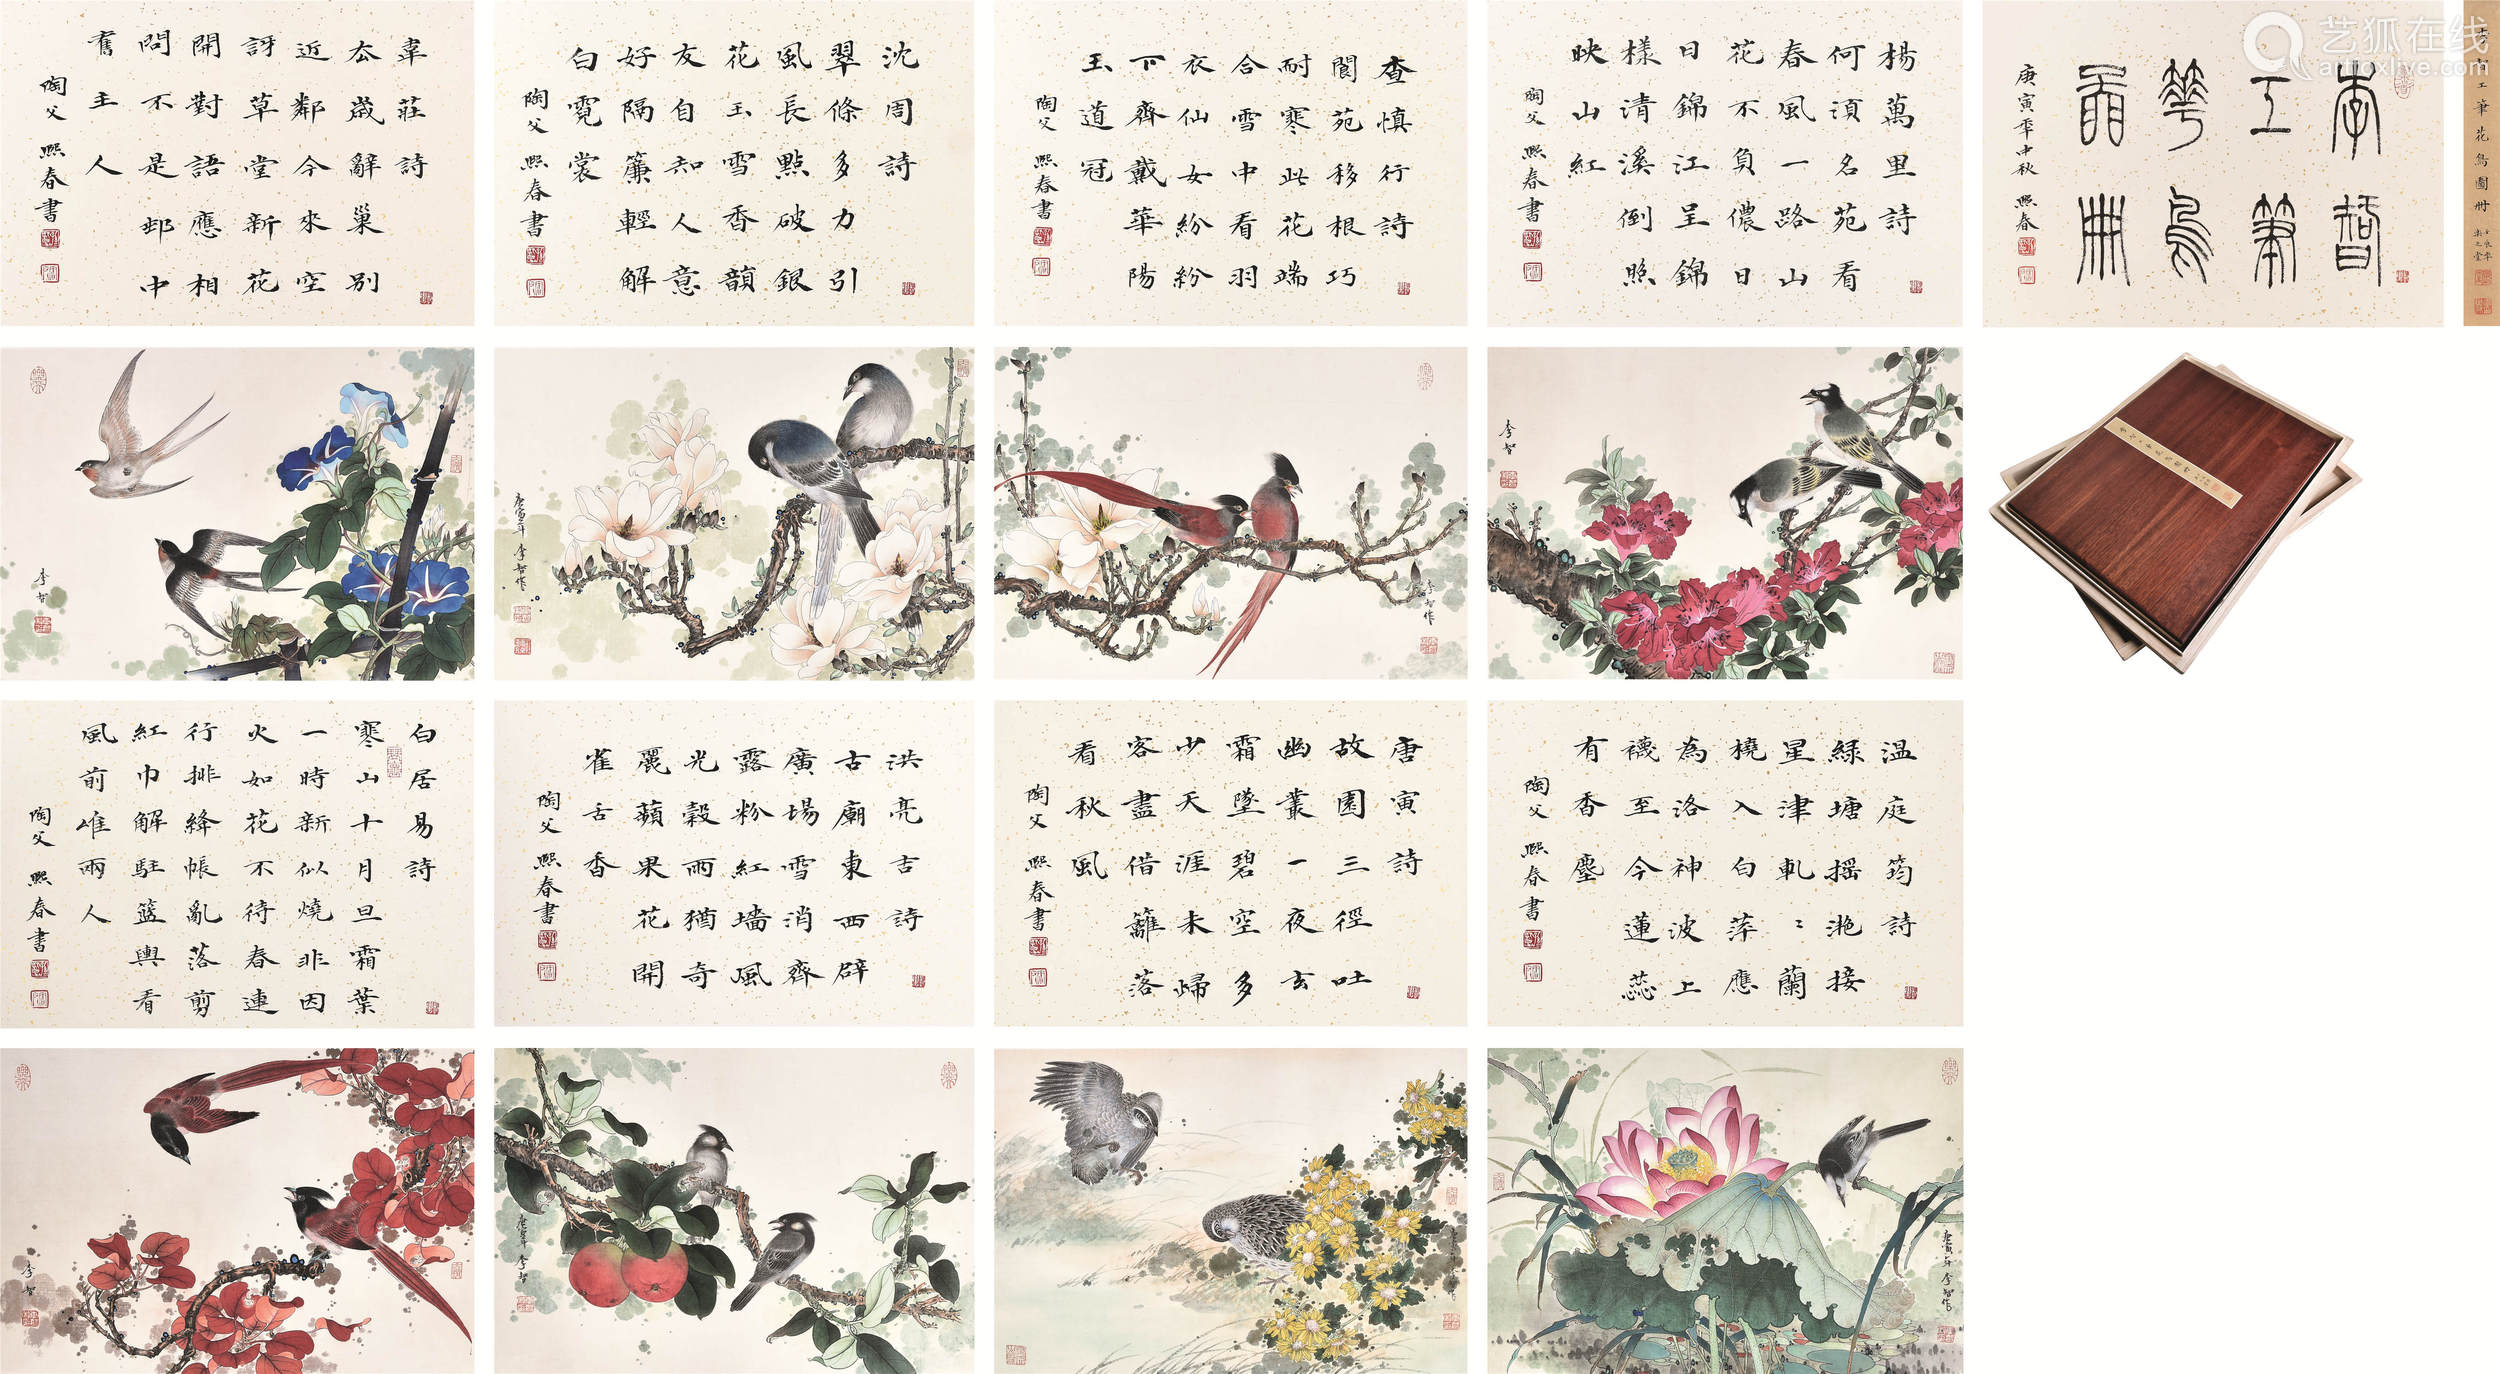 韋莊詩
去歲辭巢別
近鄰今來空
訝草堂新花
開對語應相
問不是邨中
舊主人
陶父
熙春書
沈周詩
翠條多力引
風長點破銀
花玉雪香韻
友自知人意
好隔簾輕解
白霓裳
陶父
熙春書
查慎行詩
閬苑移根巧
耐寒此花端
合雪中看羽
衣仙女紛紛
下齊戴華陽
玉道冠
陶父
熙春書
楊萬里詩
何須名苑看
春風一路山
花不負儂日
日錦江呈錦
樣清溪倒照
映山紅
陶父
熙春書
李智
工筆
華鳥
畫冊
庚寅年中秋
熙春
李智工筆花鳥圖冊
艺狐在线
artfoxlive.com
李智
庚寅年李智作
李智作
李智
白居易詩
寒山十月旦霜葉
一時新似燒非因
火如花不待春連
行排絳帳亂落剪
紅巾解駐籃輿看
風前唯兩人
陶父
熙春書
洪亮吉詩
古廟東西辟
廣場雪消齊
露粉紅墻風
光縠雨猶奇
麗蘋果花開
雀舌香
陶父
熙春書
唐寅詩
故園三徑吐
幽叢一夜玄
霜墜碧空多
少天涯未歸
客盡借籬落
看秋風
陶父
熙春書
溫庭筠詩
綠塘搖灩接
星津軋〻蘭
橈入白萍應
為洛神波上
襪至今蓮蕊
有香塵
陶父
熙春書
李智
庚寅年李智
庚寅年李智作